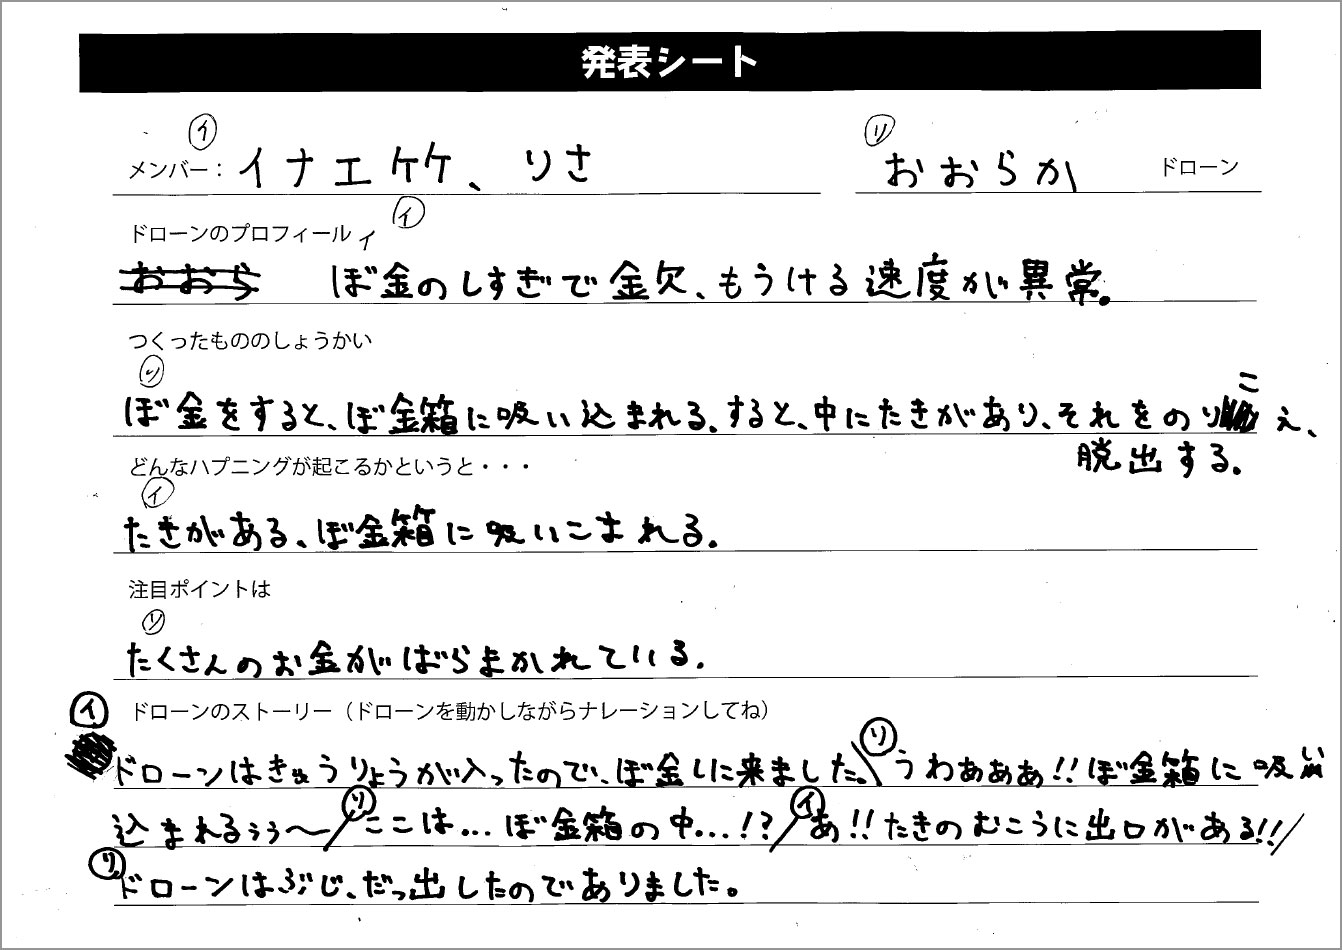 発表シート
イ
リ
メンバー： イナエケケ、りさ
おおらか ドローン
ドローンのプロフィール イ
イ
おおら ぼ金のしすぎで金欠、もうける速度が異常。
つくったもののしょうかい
リ
ぼ金をすると、ぼ金箱に吸い込まれる。すると、中にたきがあり、それをのりこえ、
脱出する。
どんなハプニングが起こるかというと・・・
イ
たきがある、ぼ金箱に吸いこまれる。
注目ポイントは
リ
たくさんのお金がばらまかれている。
イ ドローンのストーリー（ドローンを動かしながらナレーションしてね）
ドローンはきゅうりょうが入ったので、ぼ金しに来ました。\ リ うわぁぁぁ!!ぼ金箱に吸い
込まれるぅぅ〜/ リ ここは…ぼ金箱の中…!?/ イ あ!!たきのむこうに出口がある!!/
リ ドローンはぶじ、だっ出したのでありました。